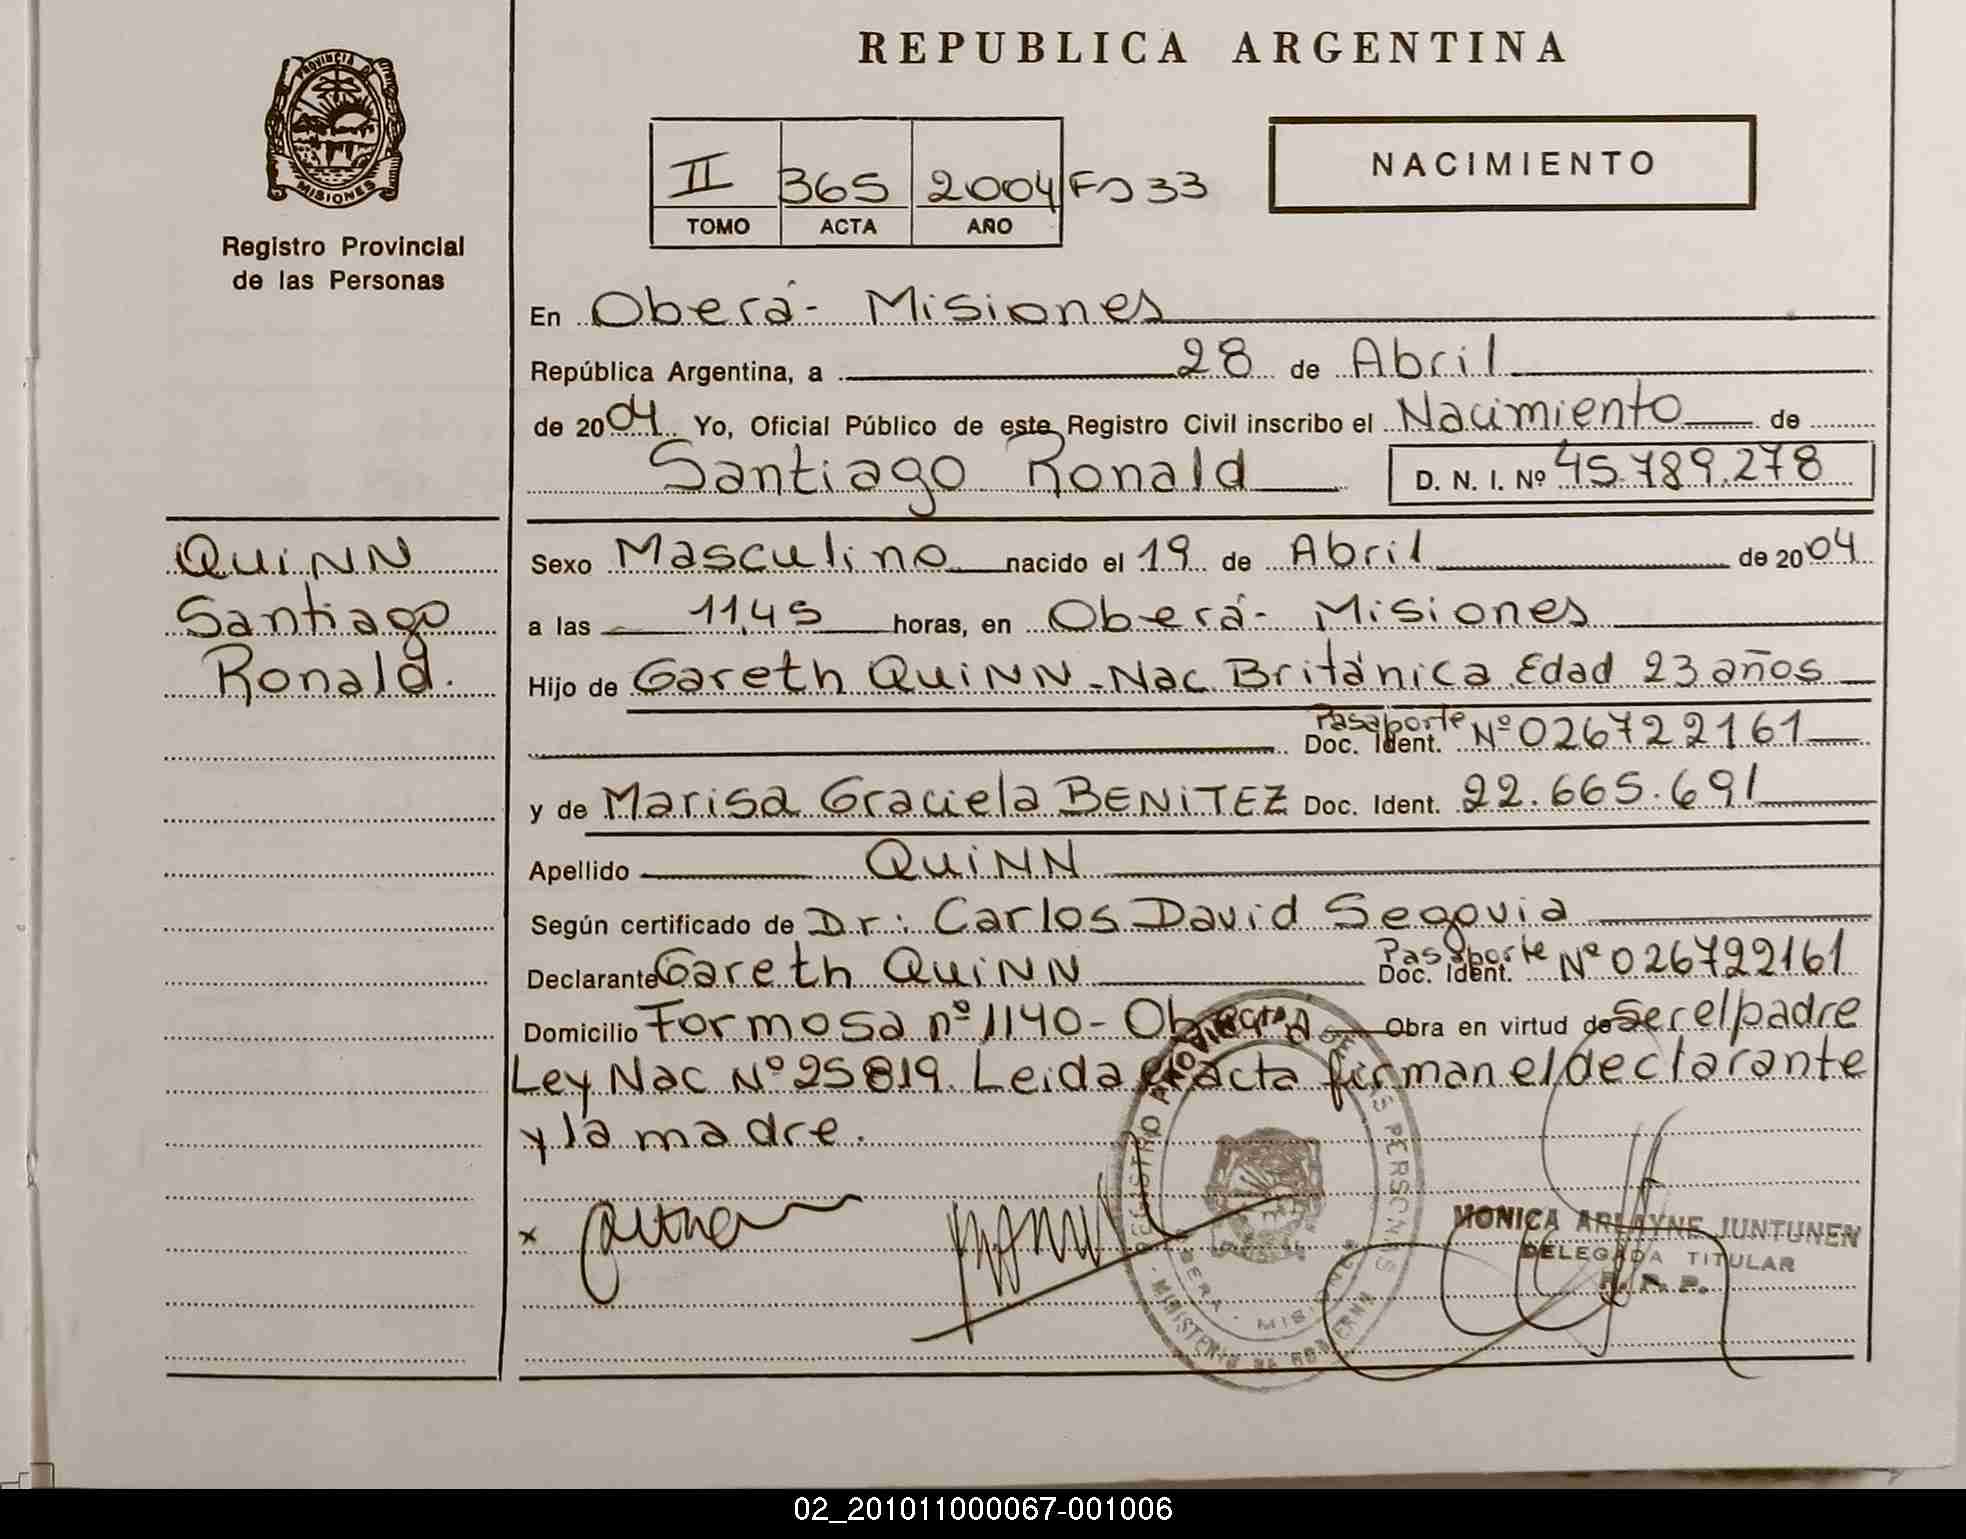 REPUBLICA ARGENTINA
PROVINCIA DE
MISIONES
Registro Provincial
de las Personas
II 365 2004 Fo 33
TOMO ACTA AÑO
NACIMIENTO
En Oberá- Misiones
República Argentina, a 28 de Abril
de 2004 Yo, Oficial Público de este Registro Civil inscribo el Nacimiento de
Santiago Ronald D. N. I. Nº 45.789.278
QUINN
Santiago
Ronald.
Sexo Masculino nacido el 19 de Abril de 2004
a las 11,45 horas, en Oberá- Misiones
Hijo de Gareth QUINN-Nac. Británica Edad 23 años
Pasaporte
Doc. Ident. Nº 026722161
y de Marisa Graciela BENITEZ Doc. Ident. 22.665.691
Apellido QUINN
Según certificado de Dr: Carlos David Segovia
Declarante Gareth QUINN Pasaporte Doc. Ident. Nº 026722161
Domicilio Formosa nº 1140- Oberá Obra en virtud de ser el padre
Ley Nac Nº 25819. Leida el acta firman el declarante
y la madre.
x
REGISTRO PROVINCIAL DE LAS PERSONAS
OBERA - MISIONES
MINISTERIO DE GOBIERNO
MONICA ARLAYNE JUNTUNEN
DELEGADA TITULAR
R. P. P.
02_201011000067-001006